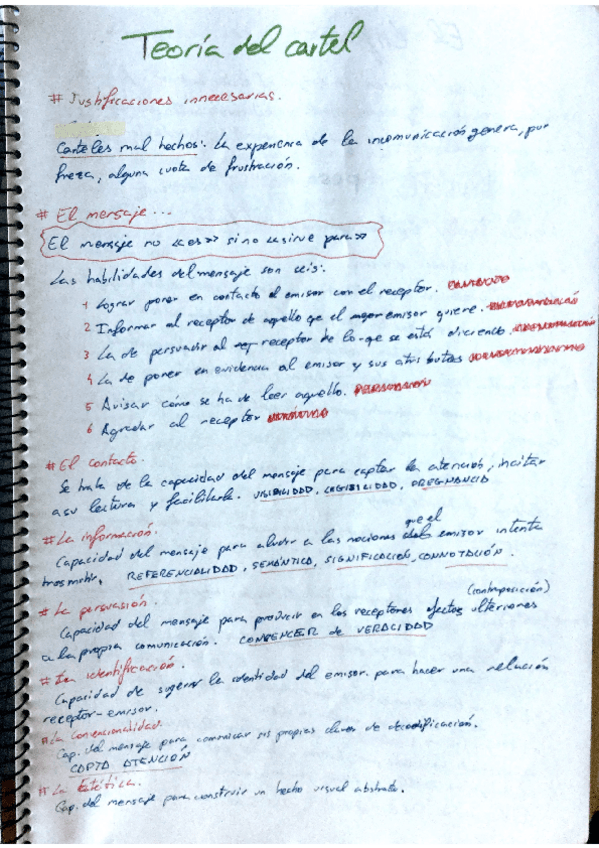 Teoría del cartel
# Justificaciones innecesarias.
Carteles mal hechos: La experiencia de la incomunicación genera, por
freza, alguna cuota de frustración.
# El mensaje...
El mensaje no «es» sino «sirve para»
Las habilidades del mensaje son seis:
1 Lograr poner en contacto al emisor con el receptor.
2 Informar al receptor de aquello qe el emisor quiere.
3 La de persuadir al receptor de lo qe se está diciendo.
4 La de poner en evidencia al emisor y sus atributos
5 Avisar cómo se ha de leer aquello.
6 Agradar al receptor
# El contacto.
Se trata de la capacidad del mensaje para captar la atención, incitar
a su lectura y facilitarla. VISIBILIDAD, LEGIBILIDAD, PREGNANCIA
# La información.
Capacidad del mensaje para aludir a las nociones que el emisor intenta
trasmitir. REFERENCIALIDAD, SEMÁNTICA, SIGNIFICACIÓN, CONNOTACIÓN.
# La persuasión. (contraposición)
Capacidad del mensaje para producir en los receptores efectos ulteriores
a la propia comunicación. CONVENCER de VERACIDAD
# La identificación.
Capacidad de sugerir la identidad del emisor. para hacer una relación
receptor-emisor.
# La convencionalidad.
Cap. del mensaje para comunicar sus propias claves de decodificación.
CAPTA ATENCIÓN
# La Estética.
Cap. del mensaje para construir un hecho visual abstracto.